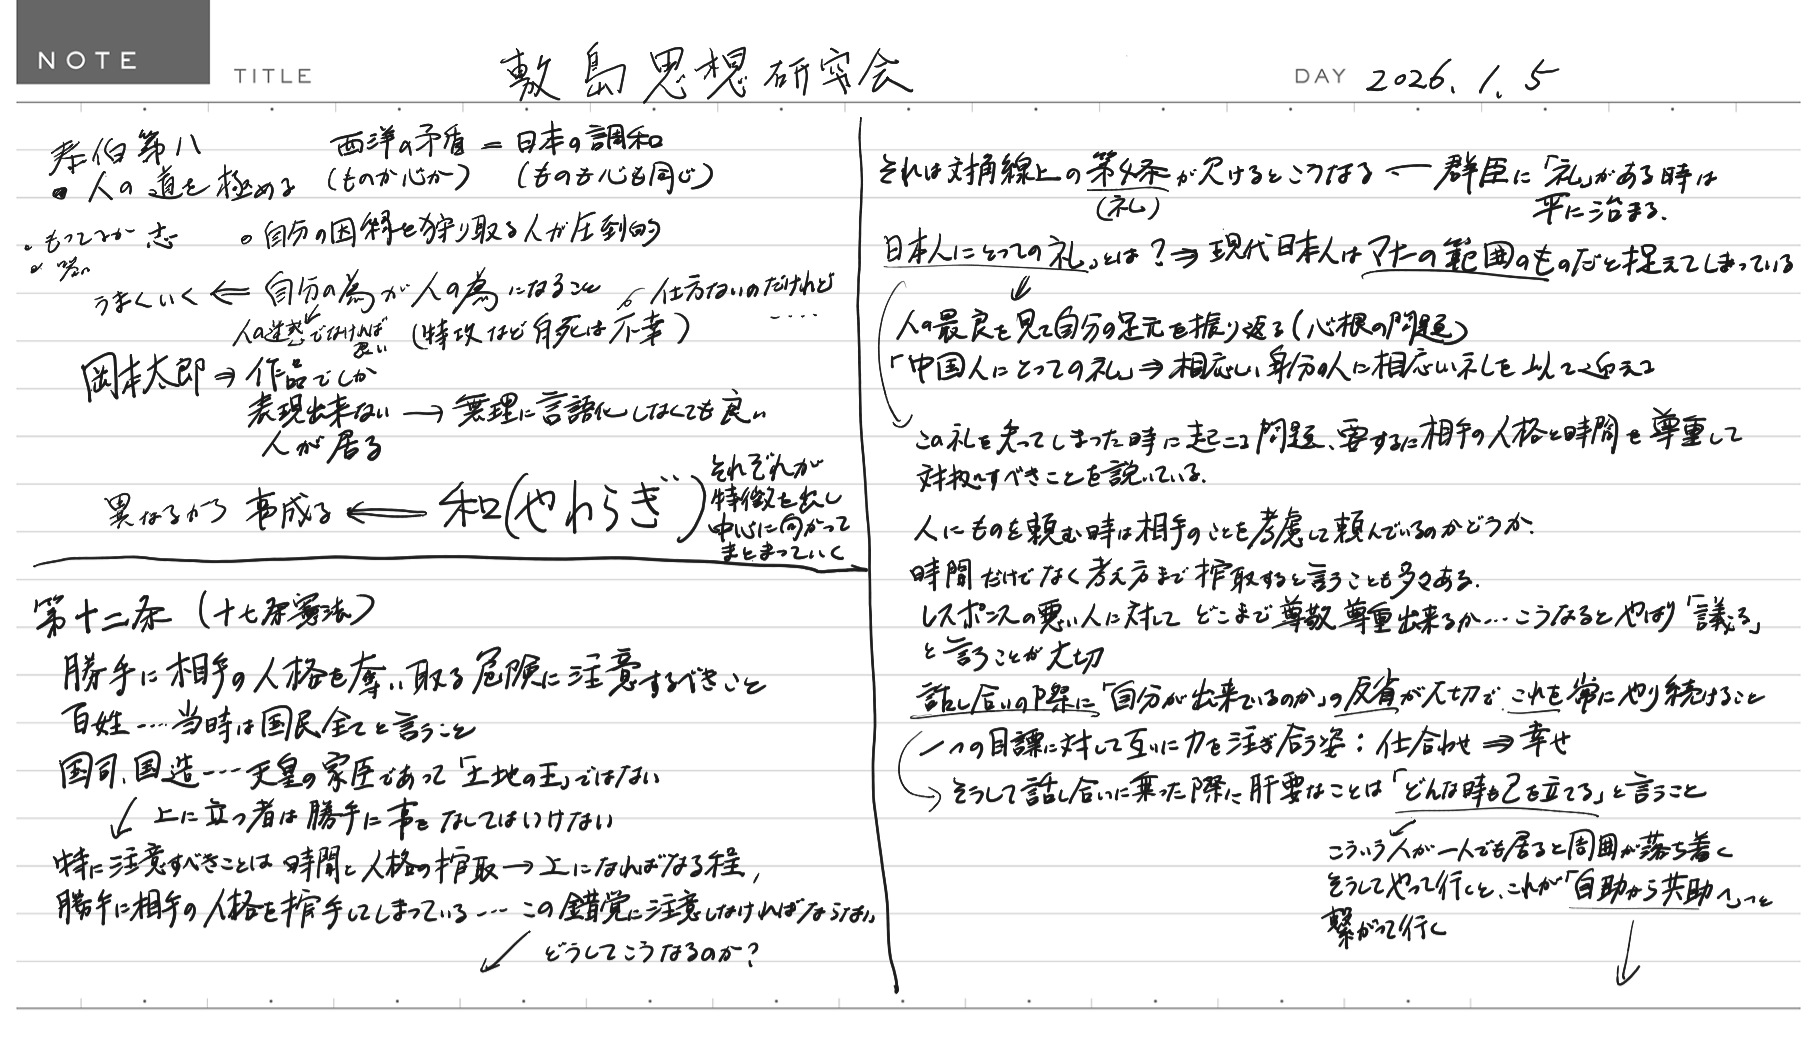 NOTE
TITLE 敷島思想研究会
DAY 2026.1.5
泰伯第八
・人の道を極める
西洋の矛盾 = 日本の調和
(ものか心か) (ものも心も同じ)
・もってるか 志
・自分の因縁を狩り取る人が圧到的
うまくいく ⇐ 自分の為が人の為になること
仕方ないのだけれど
‥‥
人の迷惑でなければ良い
(特攻など自死は不幸)
岡本太郎 ⇒ 作品でしか
表現出来ない → 無理に言語化しなくても良い
人が居る
異なるから 事成る ⇐ 和(やわらぎ)
それぞれが
特徴を出し
中心に向かって
まとまっていく
第十二条 (十七条憲法)
勝手に相手の人格を奪い取る危険に注意するべきこと
百姓…当時は国民全てと言うこと
国司、国造…天皇の家臣であって「土地の王」ではない
上に立つ者は勝手に事をなしてはいけない
特に注意すべきことは 時間と人格の搾取 → 上になればなる程、
勝手に相手の人格を搾取してしまっている…この錯覚に注意しなければならない
どうしてこうなるのか?
それは対角線上の第4条が欠けるとこうなる ← 群臣に「礼」がある時は
(礼)
平に治まる.
日本人にとっての礼」とは? ⇒ 現代日本人はマナーの範囲のものだと捉えてしまっている
人の最良を見て自分の足元を振り返る(心根の問題)
「中国人にとっての礼」⇒ 相応しい身分の人に相応しい礼を以て迎える
この礼を失ってしまった時に起こる問題、要するに相手の人格と時間を尊重して
対処すべきことを説いている.
人にものを頼む時は相手のことを考慮して頼んでいるのかどうか.
時間だけでなく考え方まで搾取すると言うことも多々ある.
レスポンスの悪い人に対して どこまで尊敬 尊重出来るか…こうなるとやはり「議る」
と言うことが大切
話し合いの際に「自分が出来ているのか」の反省が大切で これを常にやり続けること
一つの目標に対して互いに力を注ぎ合う姿：仕合わせ ⇒ 幸せ
そうして話し合いに乗った際に肝要なことは「どんな時も己を立てる」と言うこと
こういう人が一人でも居ると周囲が落ち着く
そうしてやって行くと、これが「自助から共助へ」と
繋がって行く